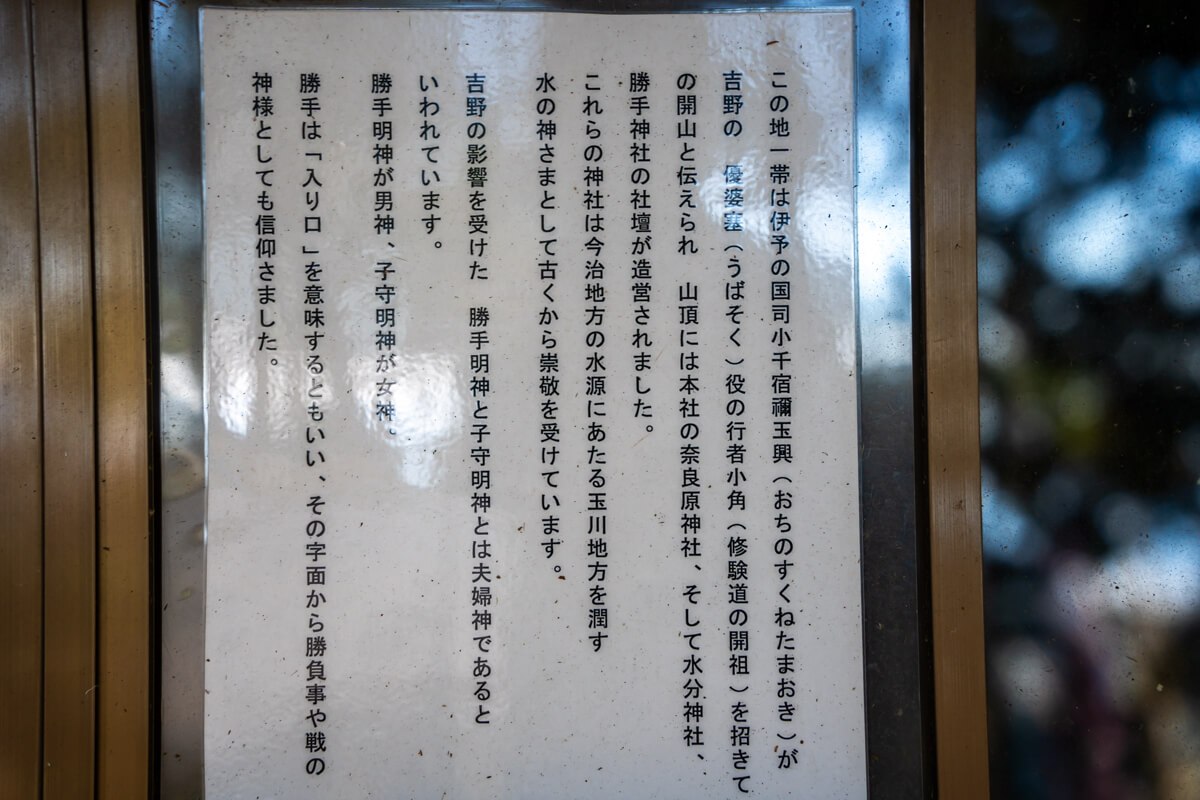 この地一帯は伊予の国司小千宿禰玉興(おちのすくねたまおき)が
吉野の 優婆塞(うばそく)役の行者小角(修験道の開祖)を招きて
の開山と伝えられ 山頂には本社の奈良原神社、そして水分神社、
勝手神社の社壇が造営されました。
これらの神社は今治地方の水源にあたる玉川地方を潤す
水の神さまとして古くから崇敬を受けています。
吉野の影響を受けた 勝手明神と子守明神とは夫婦神であると
いわれています。
勝手明神が男神、子守明神が女神。
勝手は「入り口」を意味するともいい、その字面から勝負事や戦の
神様としても信仰さました。